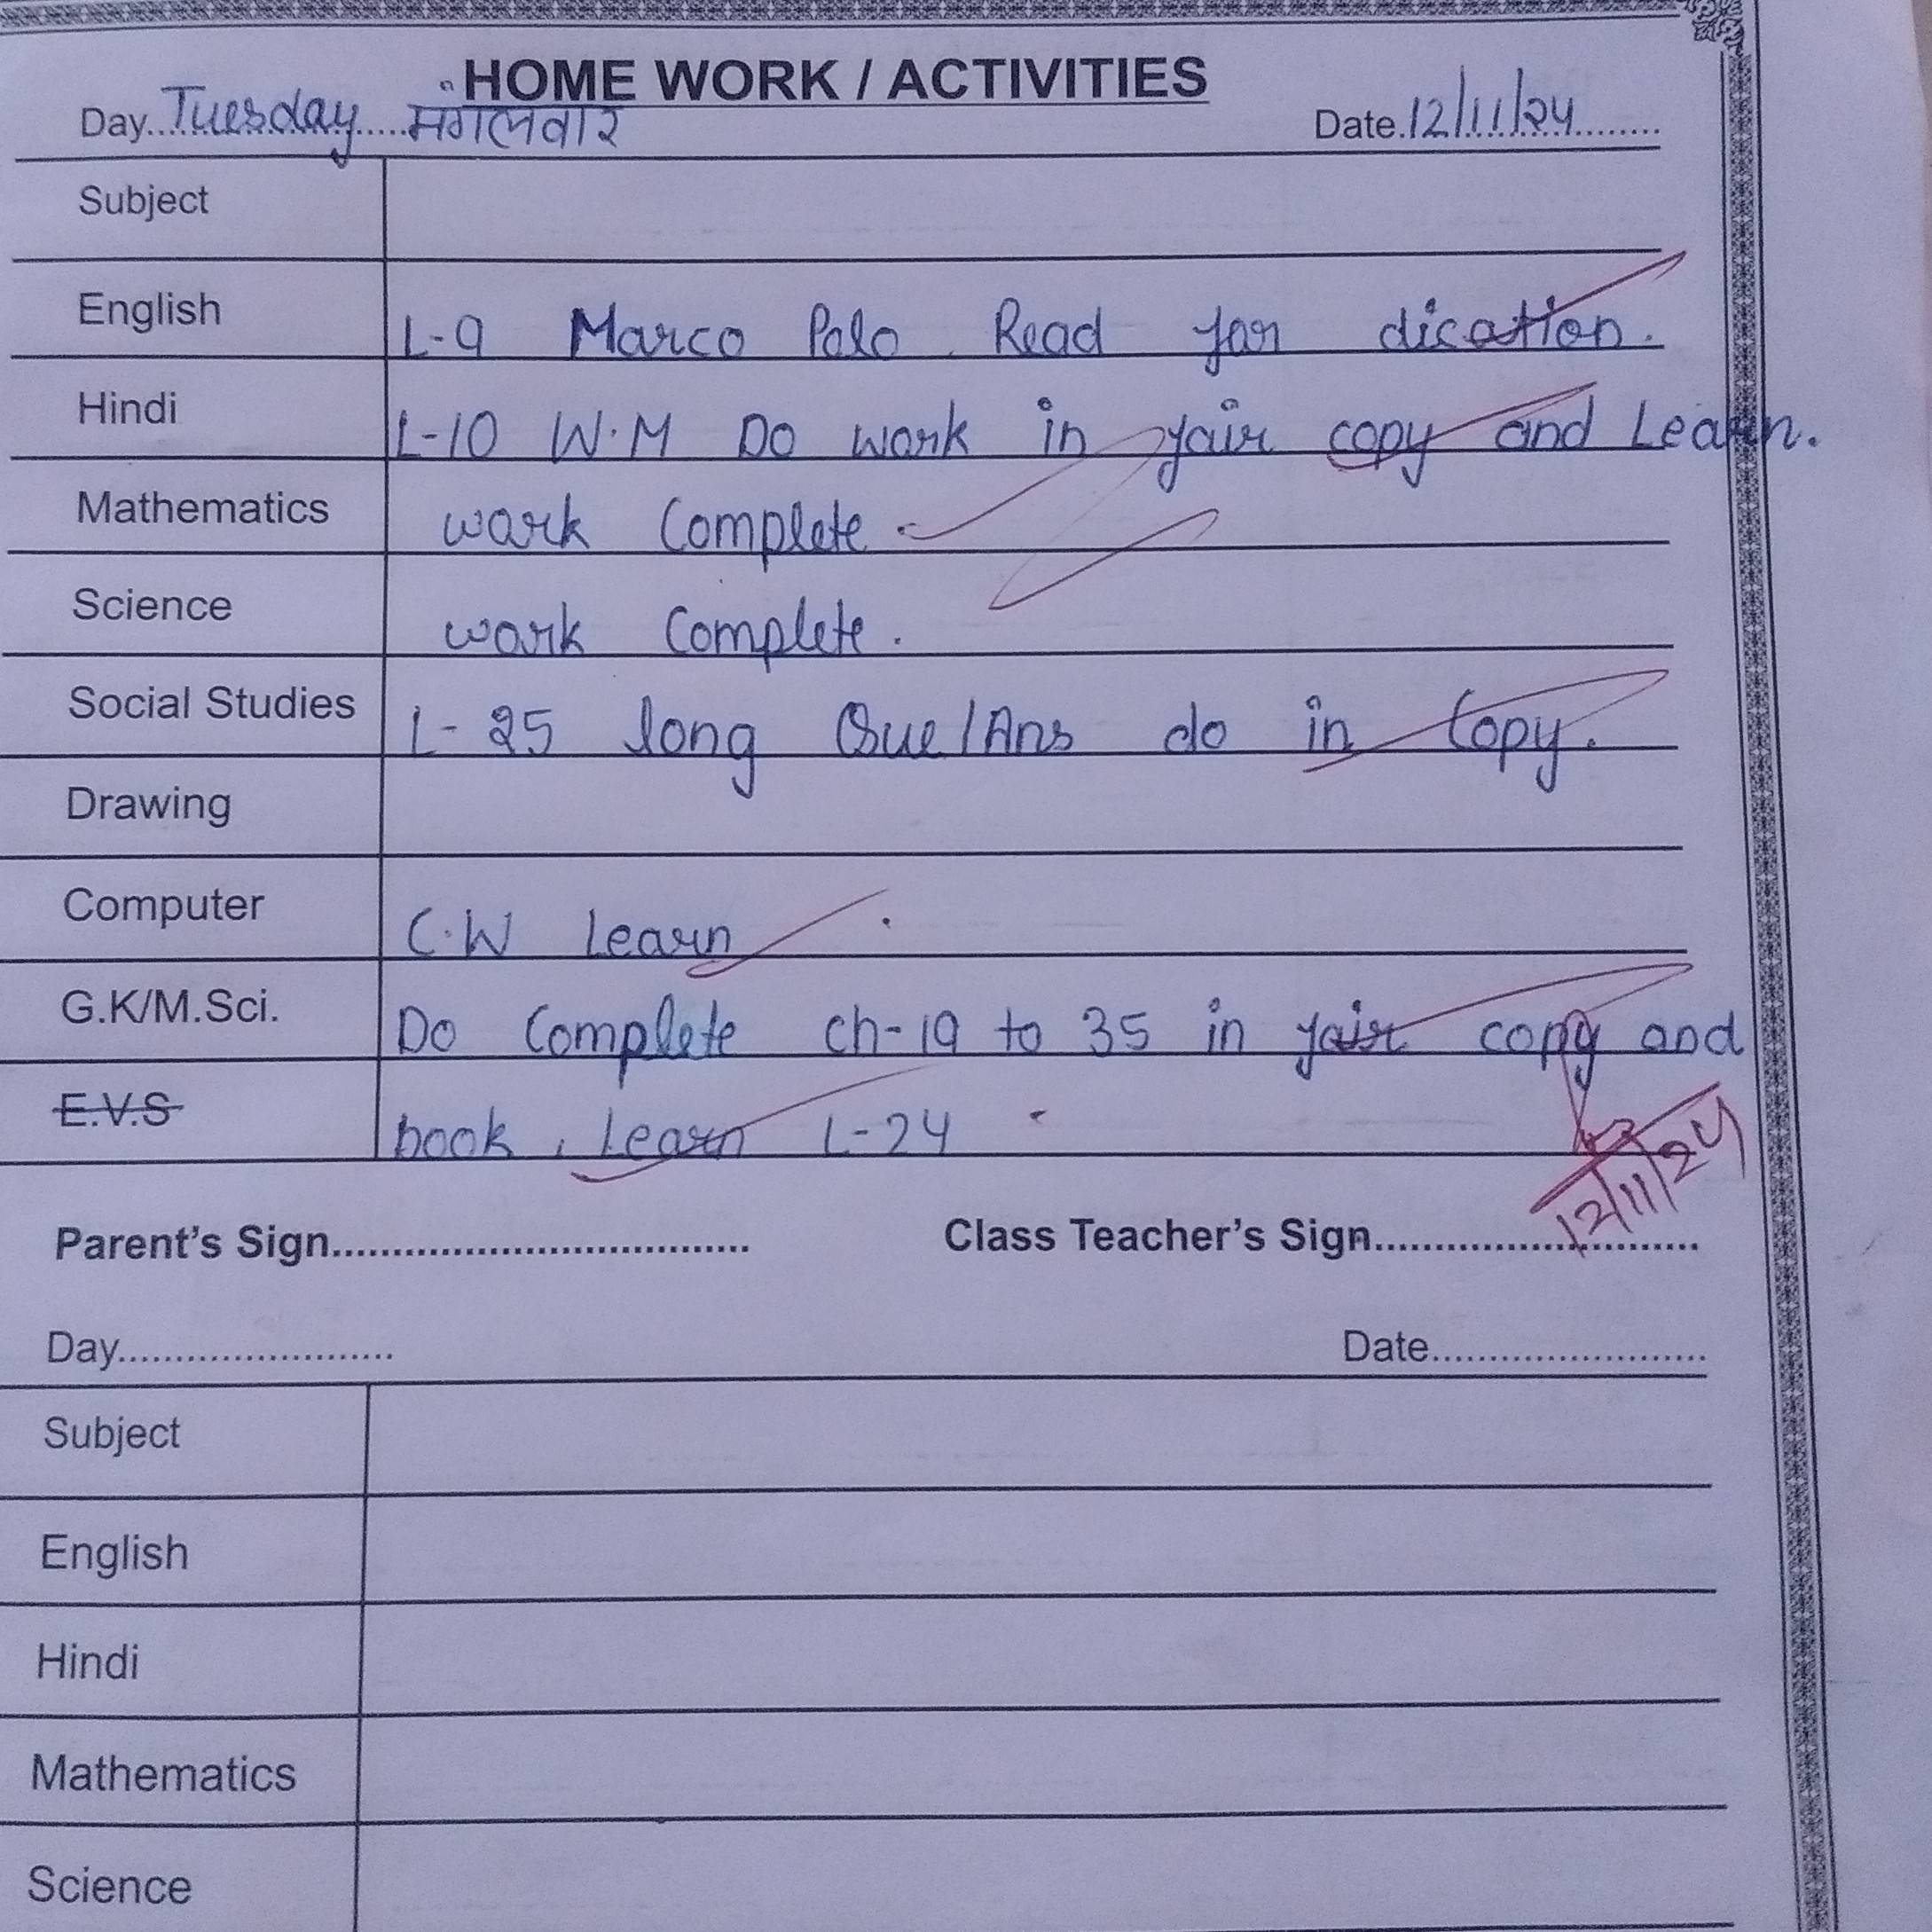 HOME WORK / ACTIVITIES
Day..Tuesday.....मंगलवार Date.12/11/24........
Subject
English L-9 Marco Polo. Read for dicattion.
Hindi L-10 W.M Do work in yair copy and Learn.
Mathematics work Complete
Science work Complete.
Social Studies L-25 long Que/Ans do in Copy.
Drawing
Computer C.W Learn.
G.K/M.Sci. Do Complete ch-19 to 35 in yair copy and
E.V.S book, Learn L-24
12/11/24
Parent's Sign.................................. Class Teacher's Sign..........................
Day....................... Date.......................
Subject
English
Hindi
Mathematics
Science